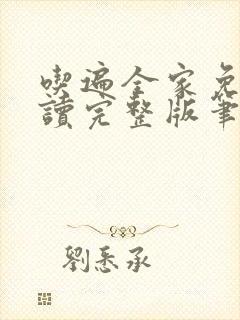 喫遍全家免
讀完整版筆
劉悉承